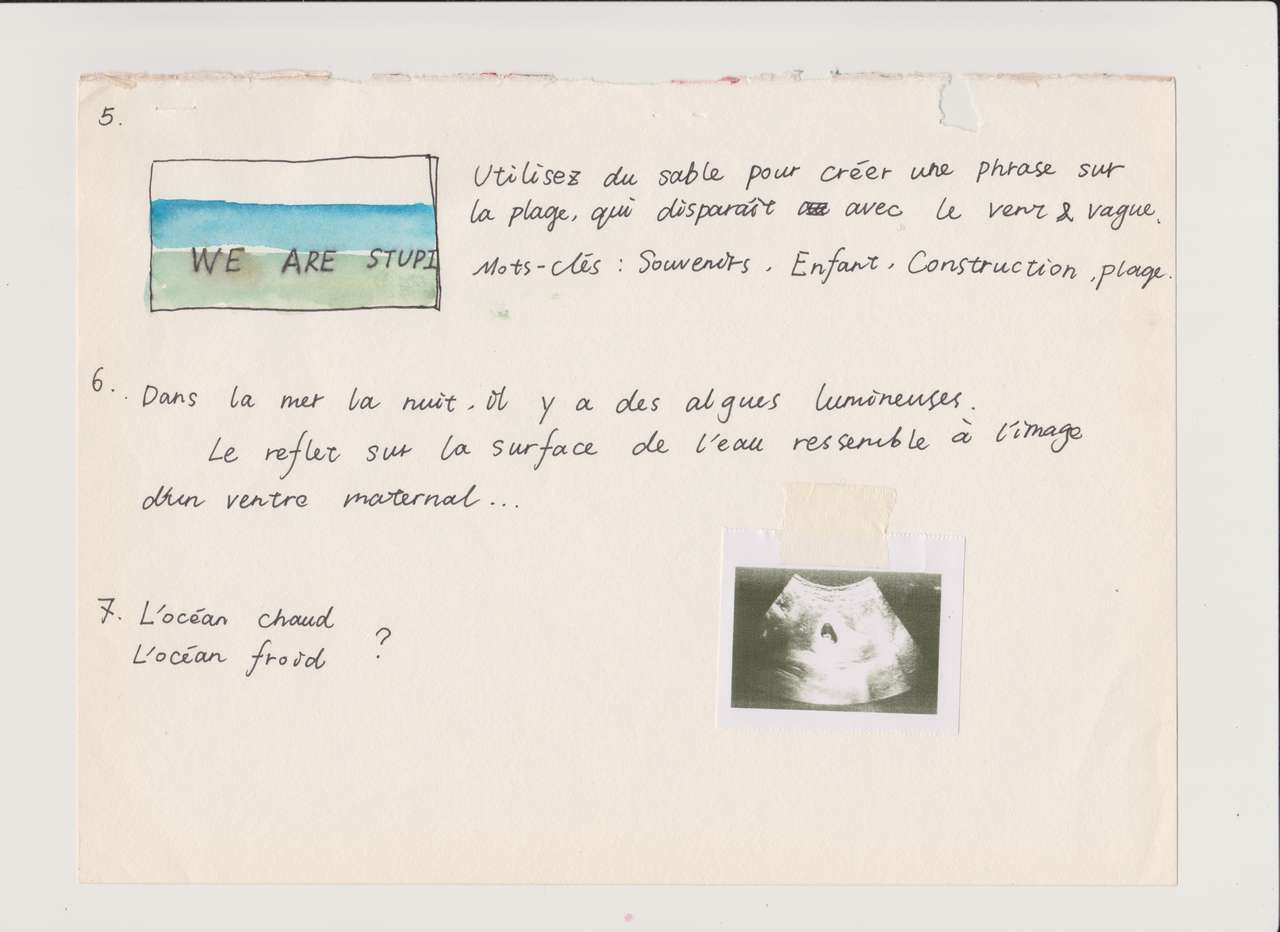 5.
WE ARE STUPI
Utilisez du sable pour créer une phrase sur
la plage, qui disparaît avec le vent & vague.
Mots-clés : Souvenirs, Enfant, Construction, plage.
6. Dans la mer la nuit, il y a des algues lumineuses.
Le reflet sur la surface de l'eau ressemble à l'image
d'un ventre maternal...
7. L'océan chaud
L'océan froid ?